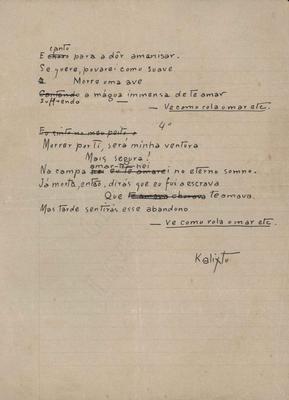 canto
E choro para a dôr amenisar.
Se quere, povarei como suave
E Morre uma ave
Cantando a mágoa immensa de te amar
suffrendo
— Ve como rola o mar etc.
4º
Eu sinto no meu peito o
Morrer por ti, será minha ventura
Mais segura!
amar-te-hei
Na campa eu te amarei no eterno somno.
Já morta, então, dirás que eu fui a escrava
Que te amava chorava te amava.
Mas tarde sentirás esse abandono
— Ve como rola o mar etc.
Kalixto